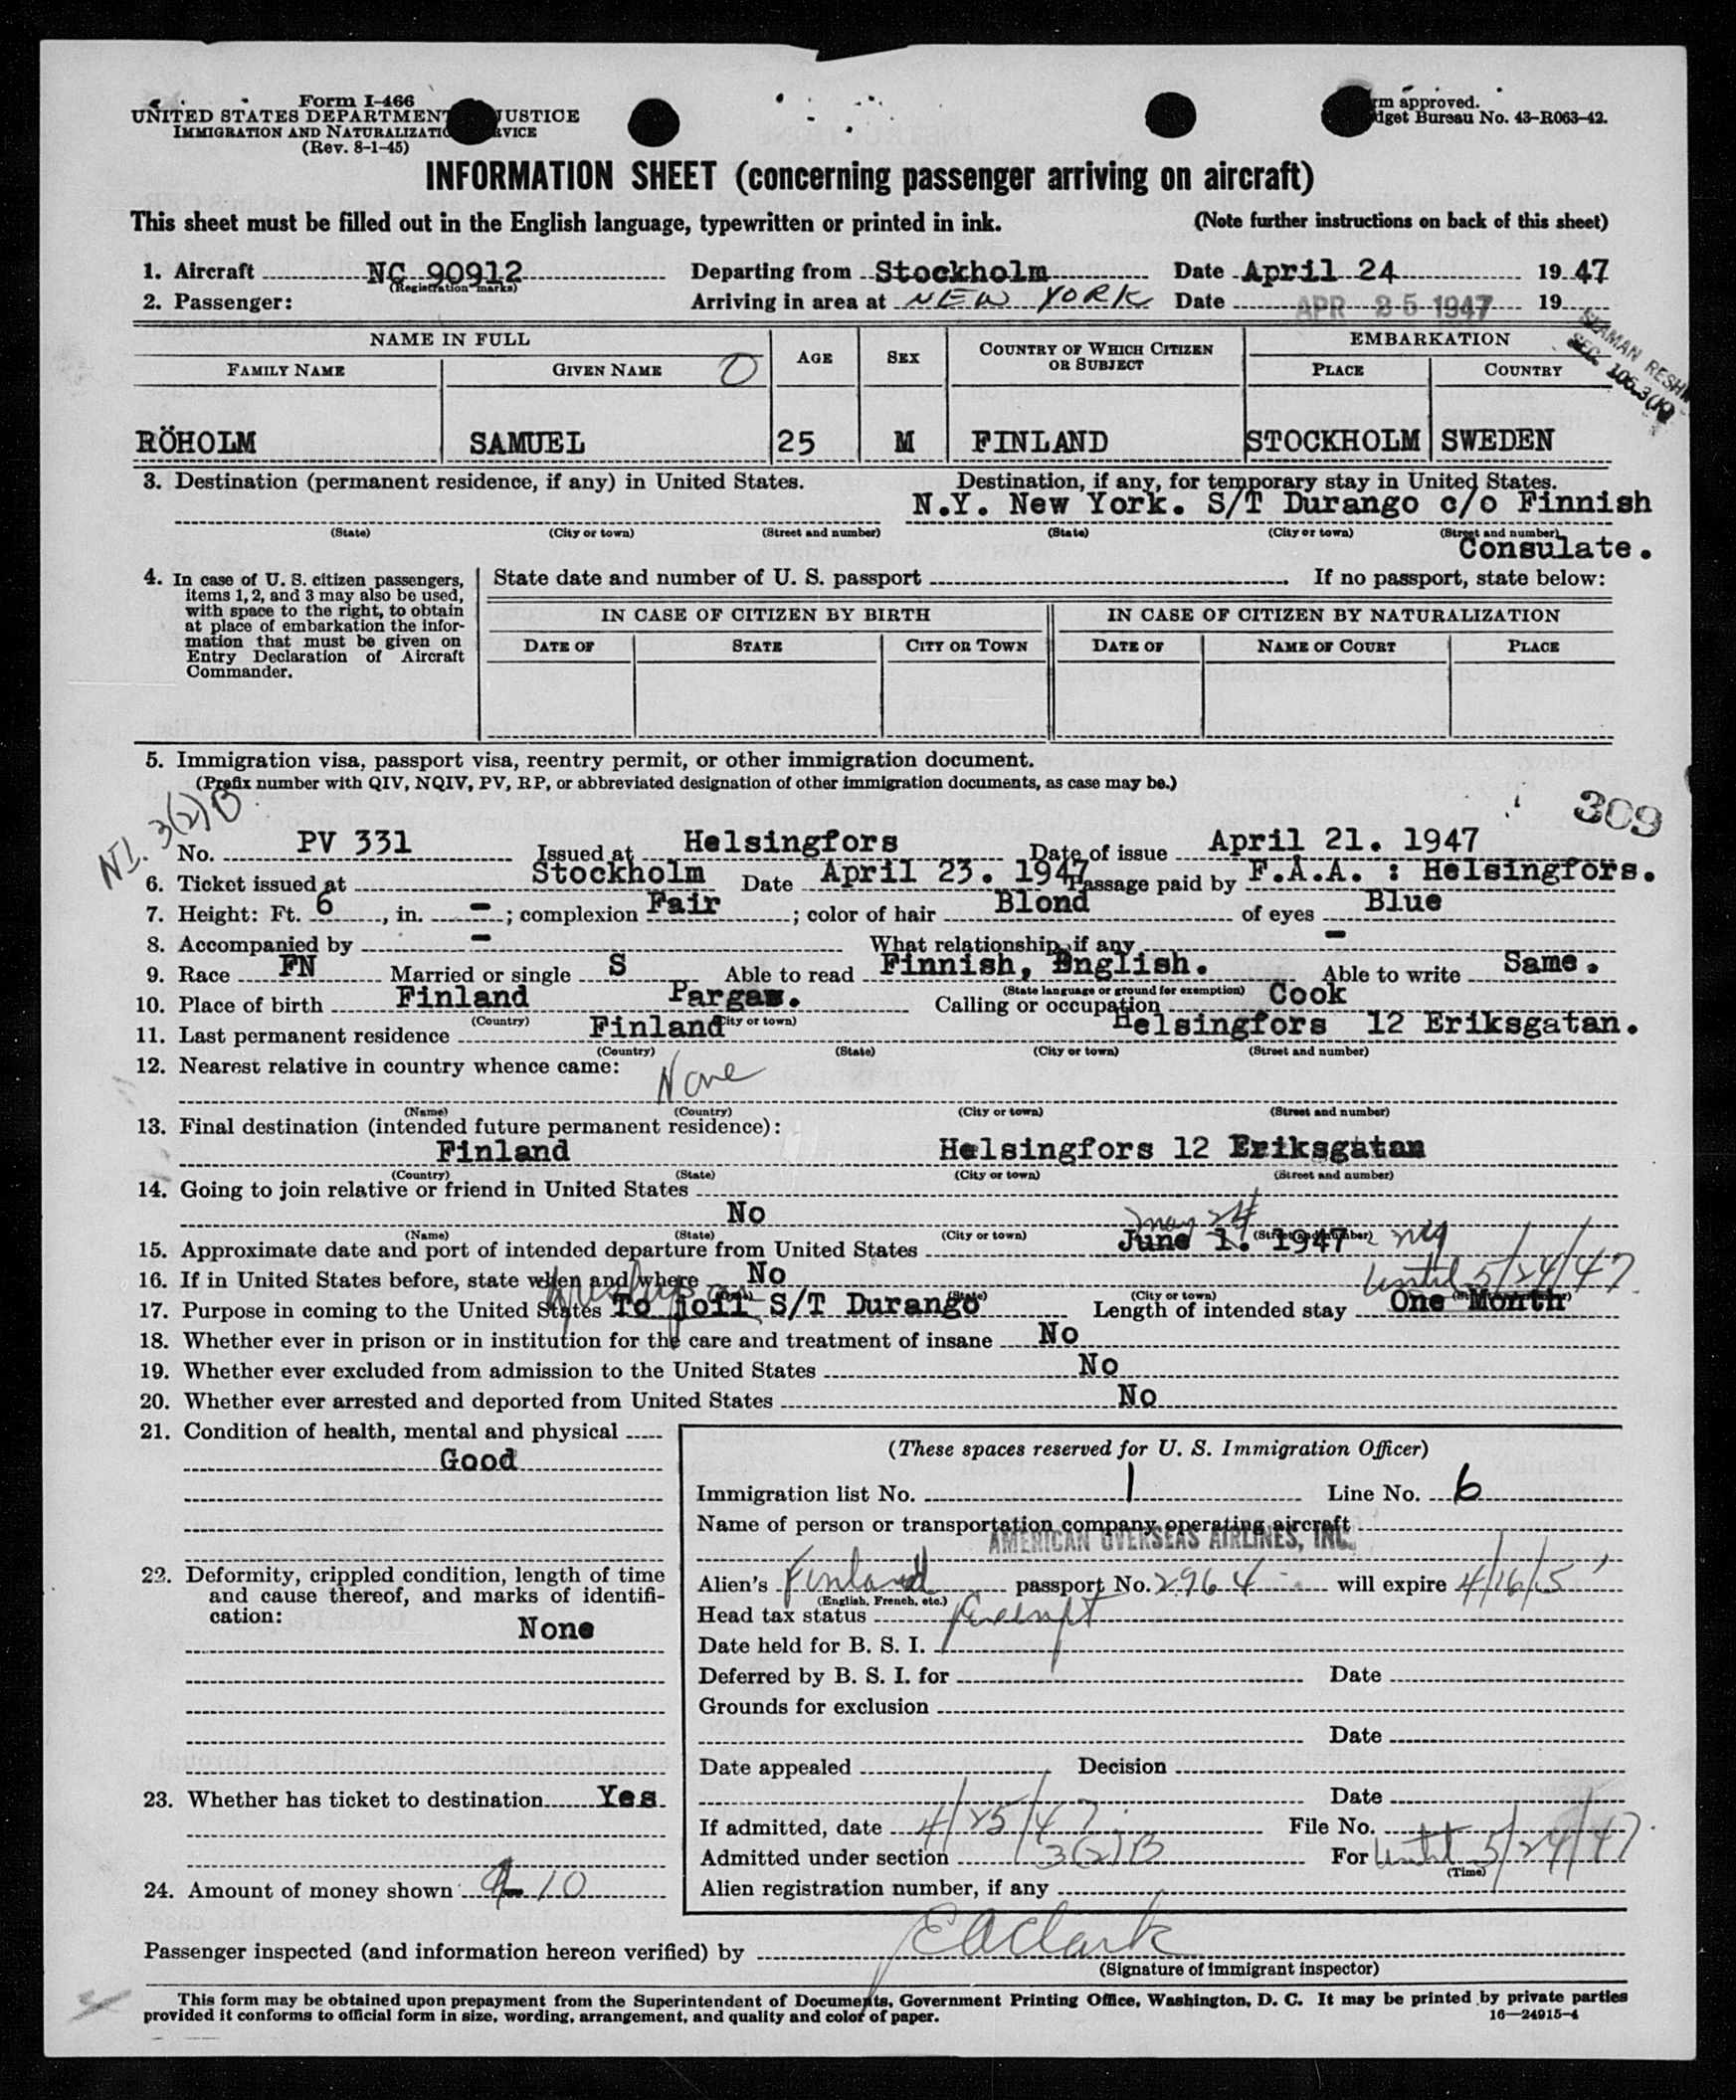 Form I-466
UNITED STATES DEPARTMENT JUSTICE
IMMIGRATION AND NATURALIZATIO RVICE
(Rev. 8-1-45)
rm approved.
dget Bureau No. 43-R063-42.
INFORMATION SHEET (concerning passenger arriving on aircraft)
This sheet must be filled out in the English language, typewritten or printed in ink. (Note further instructions on back of this sheet)
1. Aircraft NC 90912 Departing from Stockholm Date April 24 1947
(Registration marks)
2. Passenger: Arriving in area at NEW YORK Date APR 25 1947 19
SEAMAN RESH
SEC. 106.3(K)
NAME IN FULL AGE SEX COUNTRY OF WHICH CITIZEN OR SUBJECT EMBARKATION
FAMILY NAME GIVEN NAME O PLACE COUNTRY
RÖHOLM SAMUEL 25 M FINLAND STOCKHOLM SWEDEN
3. Destination (permanent residence, if any) in United States. Destination, if any, for temporary stay in United States.
N.Y. New York. S/T Durango c/o Finnish
(State) (City or town) (Street and number) (State) (City or town) (Street and number)
Consulate.
4. In case of U. S. citizen passengers, items 1, 2, and 3 may also be used, with space to the right, to obtain at place of embarkation the information that must be given on Entry Declaration of Aircraft Commander.
State date and number of U. S. passport . If no passport, state below:
IN CASE OF CITIZEN BY BIRTH IN CASE OF CITIZEN BY NATURALIZATION
DATE OF STATE CITY OR TOWN DATE OF NAME OF COURT PLACE
5. Immigration visa, passport visa, reentry permit, or other immigration document.
(Prefix number with QIV, NQIV, PV, RP, or abbreviated designation of other immigration documents, as case may be.)
NI. 3(2)B
309
No. PV 331 Issued at Helsingfors Date of issue April 21. 1947
6. Ticket issued at Stockholm Date April 23. 1947 Passage paid by F.Å.A. : Helsingfors.
7. Height: Ft. 6, in. -; complexion Fair; color of hair Blond of eyes Blue
8. Accompanied by - What relationship, if any -
9. Race FN Married or single S Able to read Finnish, English. Able to write Same.
(State language or ground for exemption)
10. Place of birth Finland Pargas. Calling or occupation Cook
(Country) (City or town)
11. Last permanent residence Finland Helsingfors 12 Eriksgatan.
(Country) (State) (City or town) (Street and number)
12. Nearest relative in country whence came:
None
(Name) (Country) (City or town) (Street and number)
13. Final destination (intended future permanent residence):
Finland Helsingfors 12 Eriksgatan
(Country) (State) (City or town) (Street and number)
14. Going to join relative or friend in United States
No
(Name) (State) (City or town) (Street and number)
may 24
15. Approximate date and port of intended departure from United States June 1. 1947
16. If in United States before, state when and where No until 5/24/47
(State) (City or town) (Street and number)
17. Purpose in coming to the United States To join S/T Durango Length of intended stay One Month
18. Whether ever in prison or in institution for the care and treatment of insane No
19. Whether ever excluded from admission to the United States No
20. Whether ever arrested and deported from United States No
21. Condition of health, mental and physical
Good
22. Deformity, crippled condition, length of time and cause thereof, and marks of identification:
None
23. Whether has ticket to destination Yes
24. Amount of money shown 10
(These spaces reserved for U. S. Immigration Officer)
Immigration list No. 1 Line No. 6
Name of person or transportation company operating aircraft
AMERICAN OVERSEAS AIRLINES, INC.
Alien's Finland passport No. 2964 will expire 4/16/5
(English, French, etc.)
Head tax status Exempt
Date held for B. S. I.
Deferred by B. S. I. for Date
Grounds for exclusion
Date
Date appealed Decision
Date
If admitted, date 4/25/47 File No.
Admitted under section 3(2)B For until 5/24/47
(Time)
Alien registration number, if any
Passenger inspected (and information hereon verified) by EAClark
(Signature of immigrant inspector)
This form may be obtained upon prepayment from the Superintendent of Documents, Government Printing Office, Washington, D. C. It may be printed by private parties
provided it conforms to official form in size, wording, arrangement, and quality and color of paper. 16—24915-4